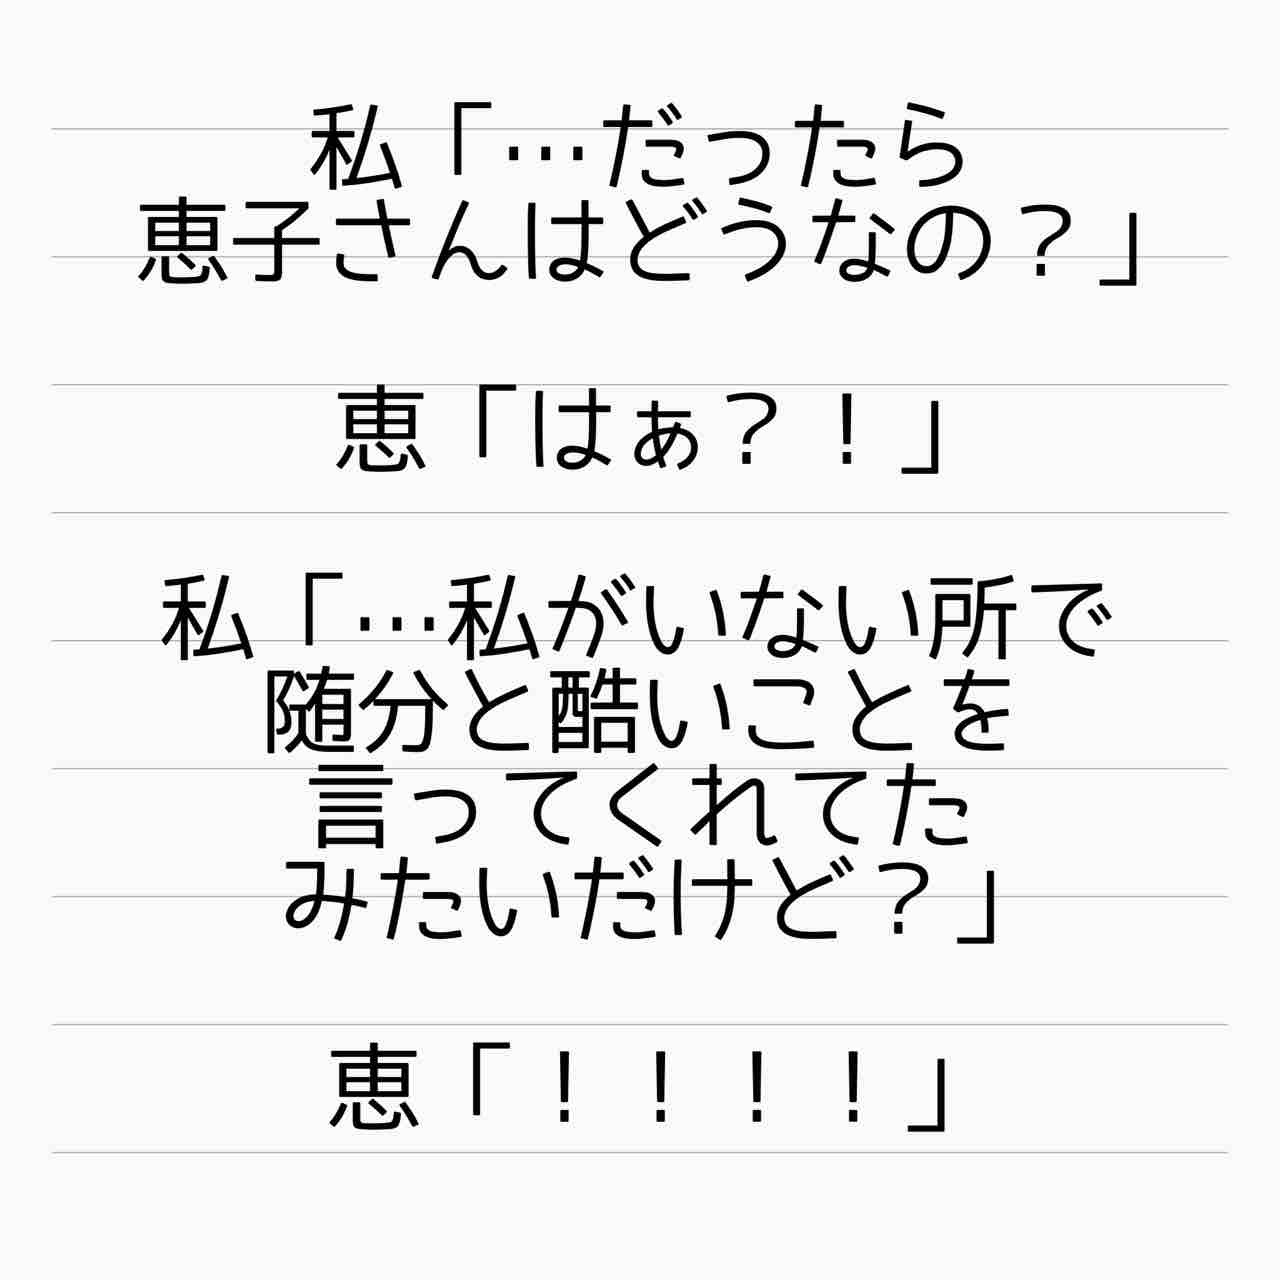 私「…だったら
恵子さんはどうなの？」
恵「はぁ？！」
私「…私がいない所で
随分と酷いことを
言ってくれてた
みたいだけど？」
恵「！！！！」